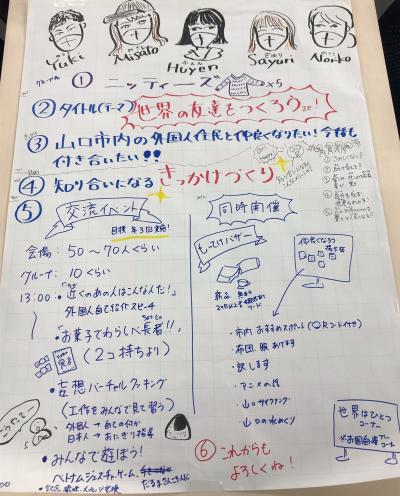 Yuki
Misato
Huyen
Sayuri
Noriko
グループ名
① ニッティーズ ×5
② タイトル(テーマ) 世界の友達をつくろうze!
③ 山口市内の外国人住民と仲良くなりたい!今後も
付き合いたい!!
④ 知り合いになる きっかけづくり
⑤
交流イベント
目標 年3回実施!
会場: 50〜70人くらい
グループ 10くらい
13:00 ・「近くのあの人はこんな人だ!」
外国人自己紹介スピーチ
・「お菓子でわらしべ長者!!」
(2コ持ちより)
・妄想バーチャルクッキング
(工作をみんなで見て習う)
日本人→おにぎり指導
・みんなで遊ぼう!
ベトナムジェスチャーゲーム、
だるまさんころんだ
同時開催
もってけバザー
仲良くなろう
掲示板
・市内おすすめスポット(QRコード付き)
・布団、服あげます
・訳します
・アニメの话
・山口サイクリング
・山口の水めぐり
世界はひとつ
コーナー
⑥ これからも
よろしくね!